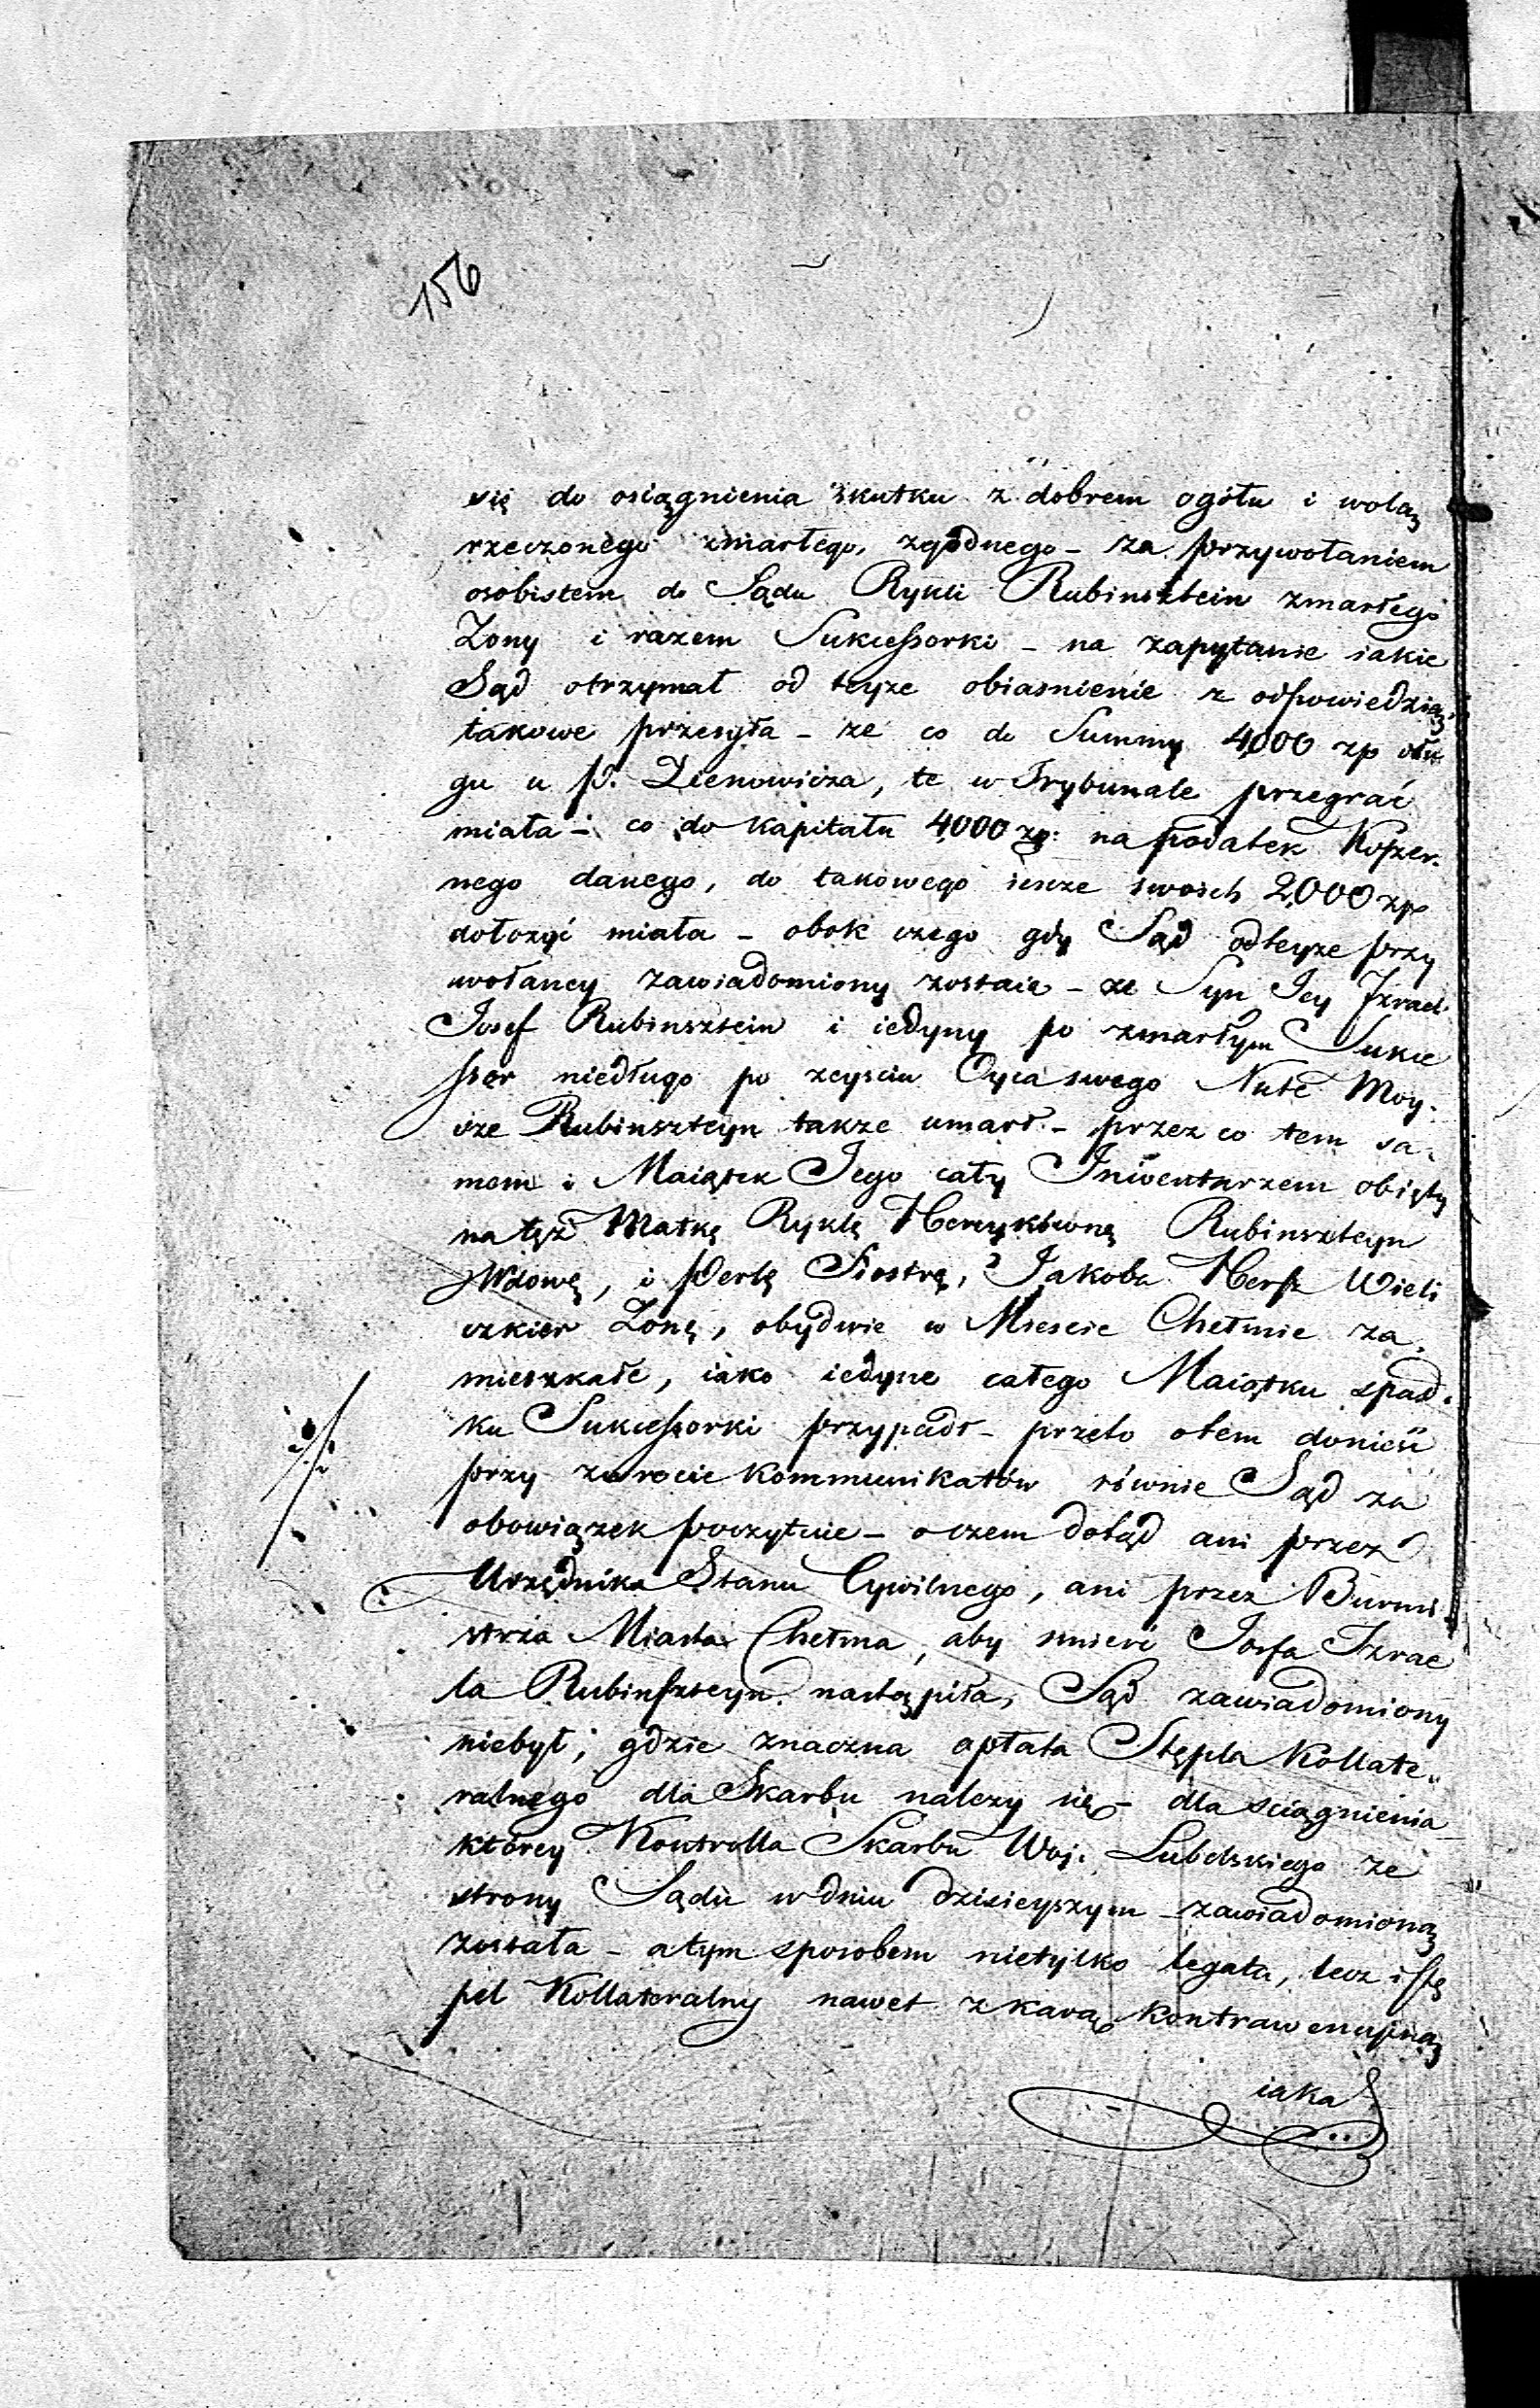 156
się do osiągnienia skutku z dobrem ogółu i wolą
rzeczonego zmarłego, zgodnego – za przywołaniem
osobistem do Sądu Rykli Rubinsztein zmarłego
Zony i razem Sukcessorki – na zapytanie iakie
Sąd otrzymał od teyże obiasnienie z odpowiedzią
takowe przesyła – ze co do Summy 4000 zp dłu
gu u P. Zienowicza, te w Trybunale przegrać
miała – co do Kapitału 4000 zp: na podatek Koszer-
nego danego, do takowego iescze swoich 2,000 zp
dołozyć miała – obok czego gdy Sąd od teyze przy
wołaney zawiadomiony zostaie – ze Syn Jey Izrael
Josef Rubinsztein i iedyny po zmarłym Sukce
ssor niedługo po zeysciu Oyca swego Nute Moy-
sze Rubinszteyn takze umarł – przez co tem sa-
mem i Maiątek Jego cały Inwentarzem obięty
na tęż Matkę Ryklę Herszykówną Rubinszteyn
Wdowę, i Perlę Siostrę, Jakoba Hersz Wieli
czkier Zonę, obydwie w Miescie Chełmie za-
mieszkałe, iako iedyne całego Maiątku spad-
ku Sukcessorki przypadł – przeto o tem donieść
przy zwrocie Kommunikatów równie Sąd za
obowiązek poczytuie – o czem dotąd ani przez
Urzędnika Stanu Cywilnego, ani przez Burmi
strza Miasta Chełma, aby smierć Josfa Izrae
la Rubinszteyn nastąpiła, Sąd zawiadomiony
niebył; gdzie znaczna opłata Stępla Kollate-
ralnego dla Skarbu nalezy się – dla sciągnienia
którey Kontrolla Skarbu Woj. Lubelskiego ze
strony Sądu w dniu dzisieyszym zawiadomioną
została – a tym sposobem nietylko legata, lecz i stę
pel Kollateralny nawet z karą kontrawencyiną
iaka